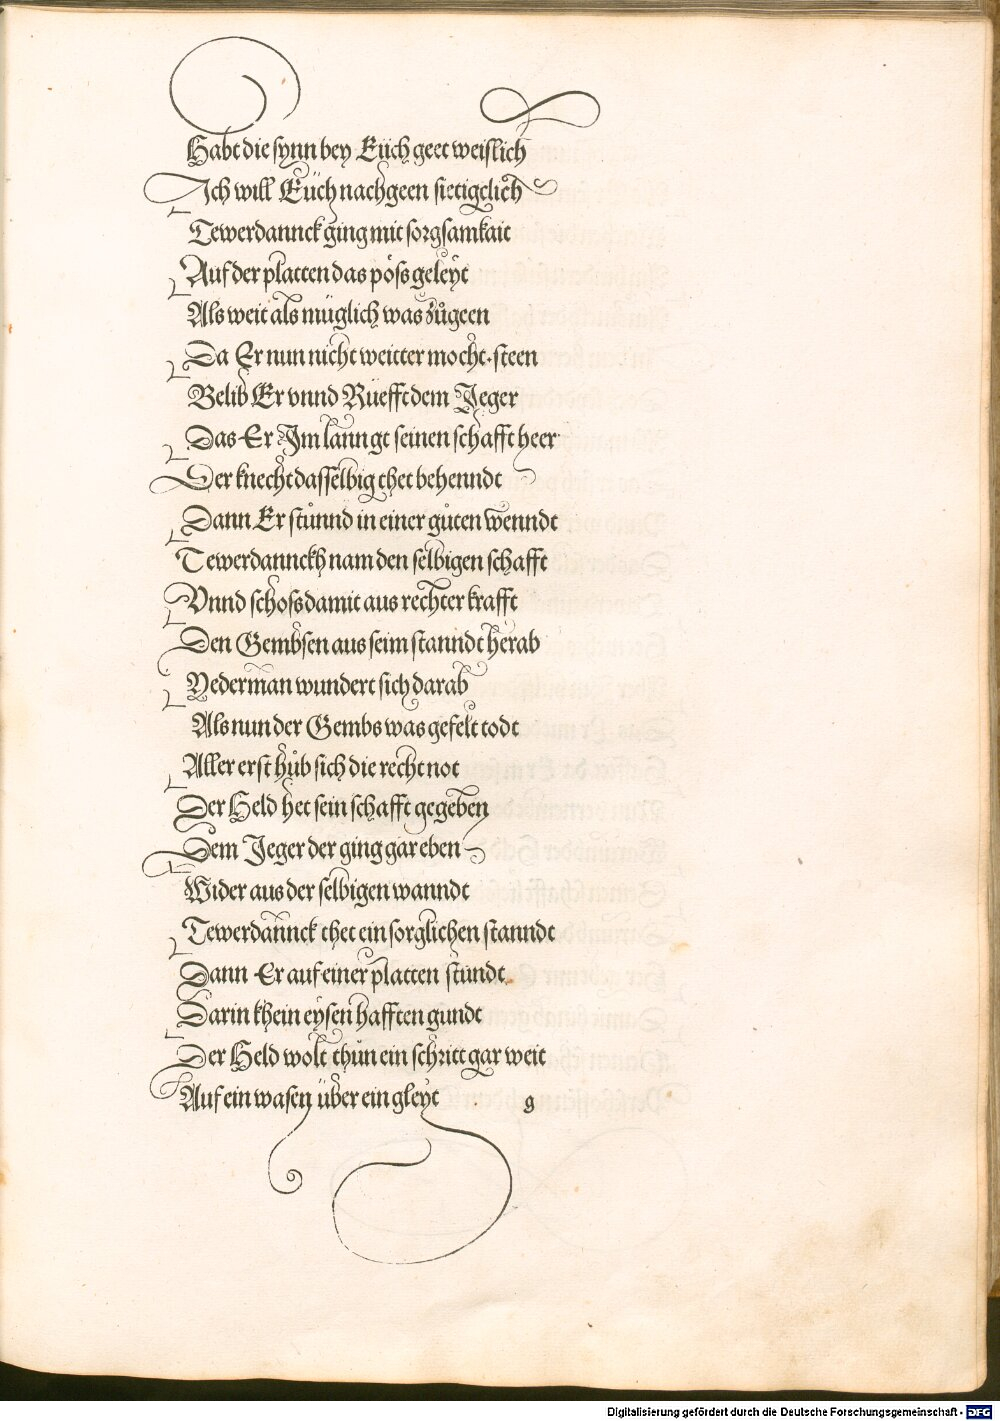 Habt die synn bey Eüch geet weislich
Ich will Eüch nachgeen sietigclich
Tewerdannck ging mit sorgsamkait
Auf der platten das pöss geleyt
Als weit als müglich was zůgeen
Da Er nun nicht weitter mocht steen
Belib Er vnnd Rüefft dem Jeger
Das Er Im lanngt seinen schafft heer
Der knecht dasselbig thet behenndt
Dann Er stůnnd in einer gůten wenndt
Tewerdannckh nam den selbigen schafft
Vnnd schoss damit aus rechter krafft
Den Gembsen aus seim stanndt herab
Yederman wundert sich darab
Als nun der Gembs was gefelt todt
Aller erst hůb sich die recht not
Der Held het sein schafft gegeben
Dem Jeger der ging gar eben
Wider aus der selbigen wanndt
Tewerdannck thet ein sorglichen stanndt
Dann Er auf einer platten stůndt
Darin khein eysen hafften gundt
Der Held wolt thůn ein schritt gar weit
Auf ein wasen über ein gleyt
g
Digitalisierung gefördert durch die Deutsche Forschungsgemeinschaft - DFG